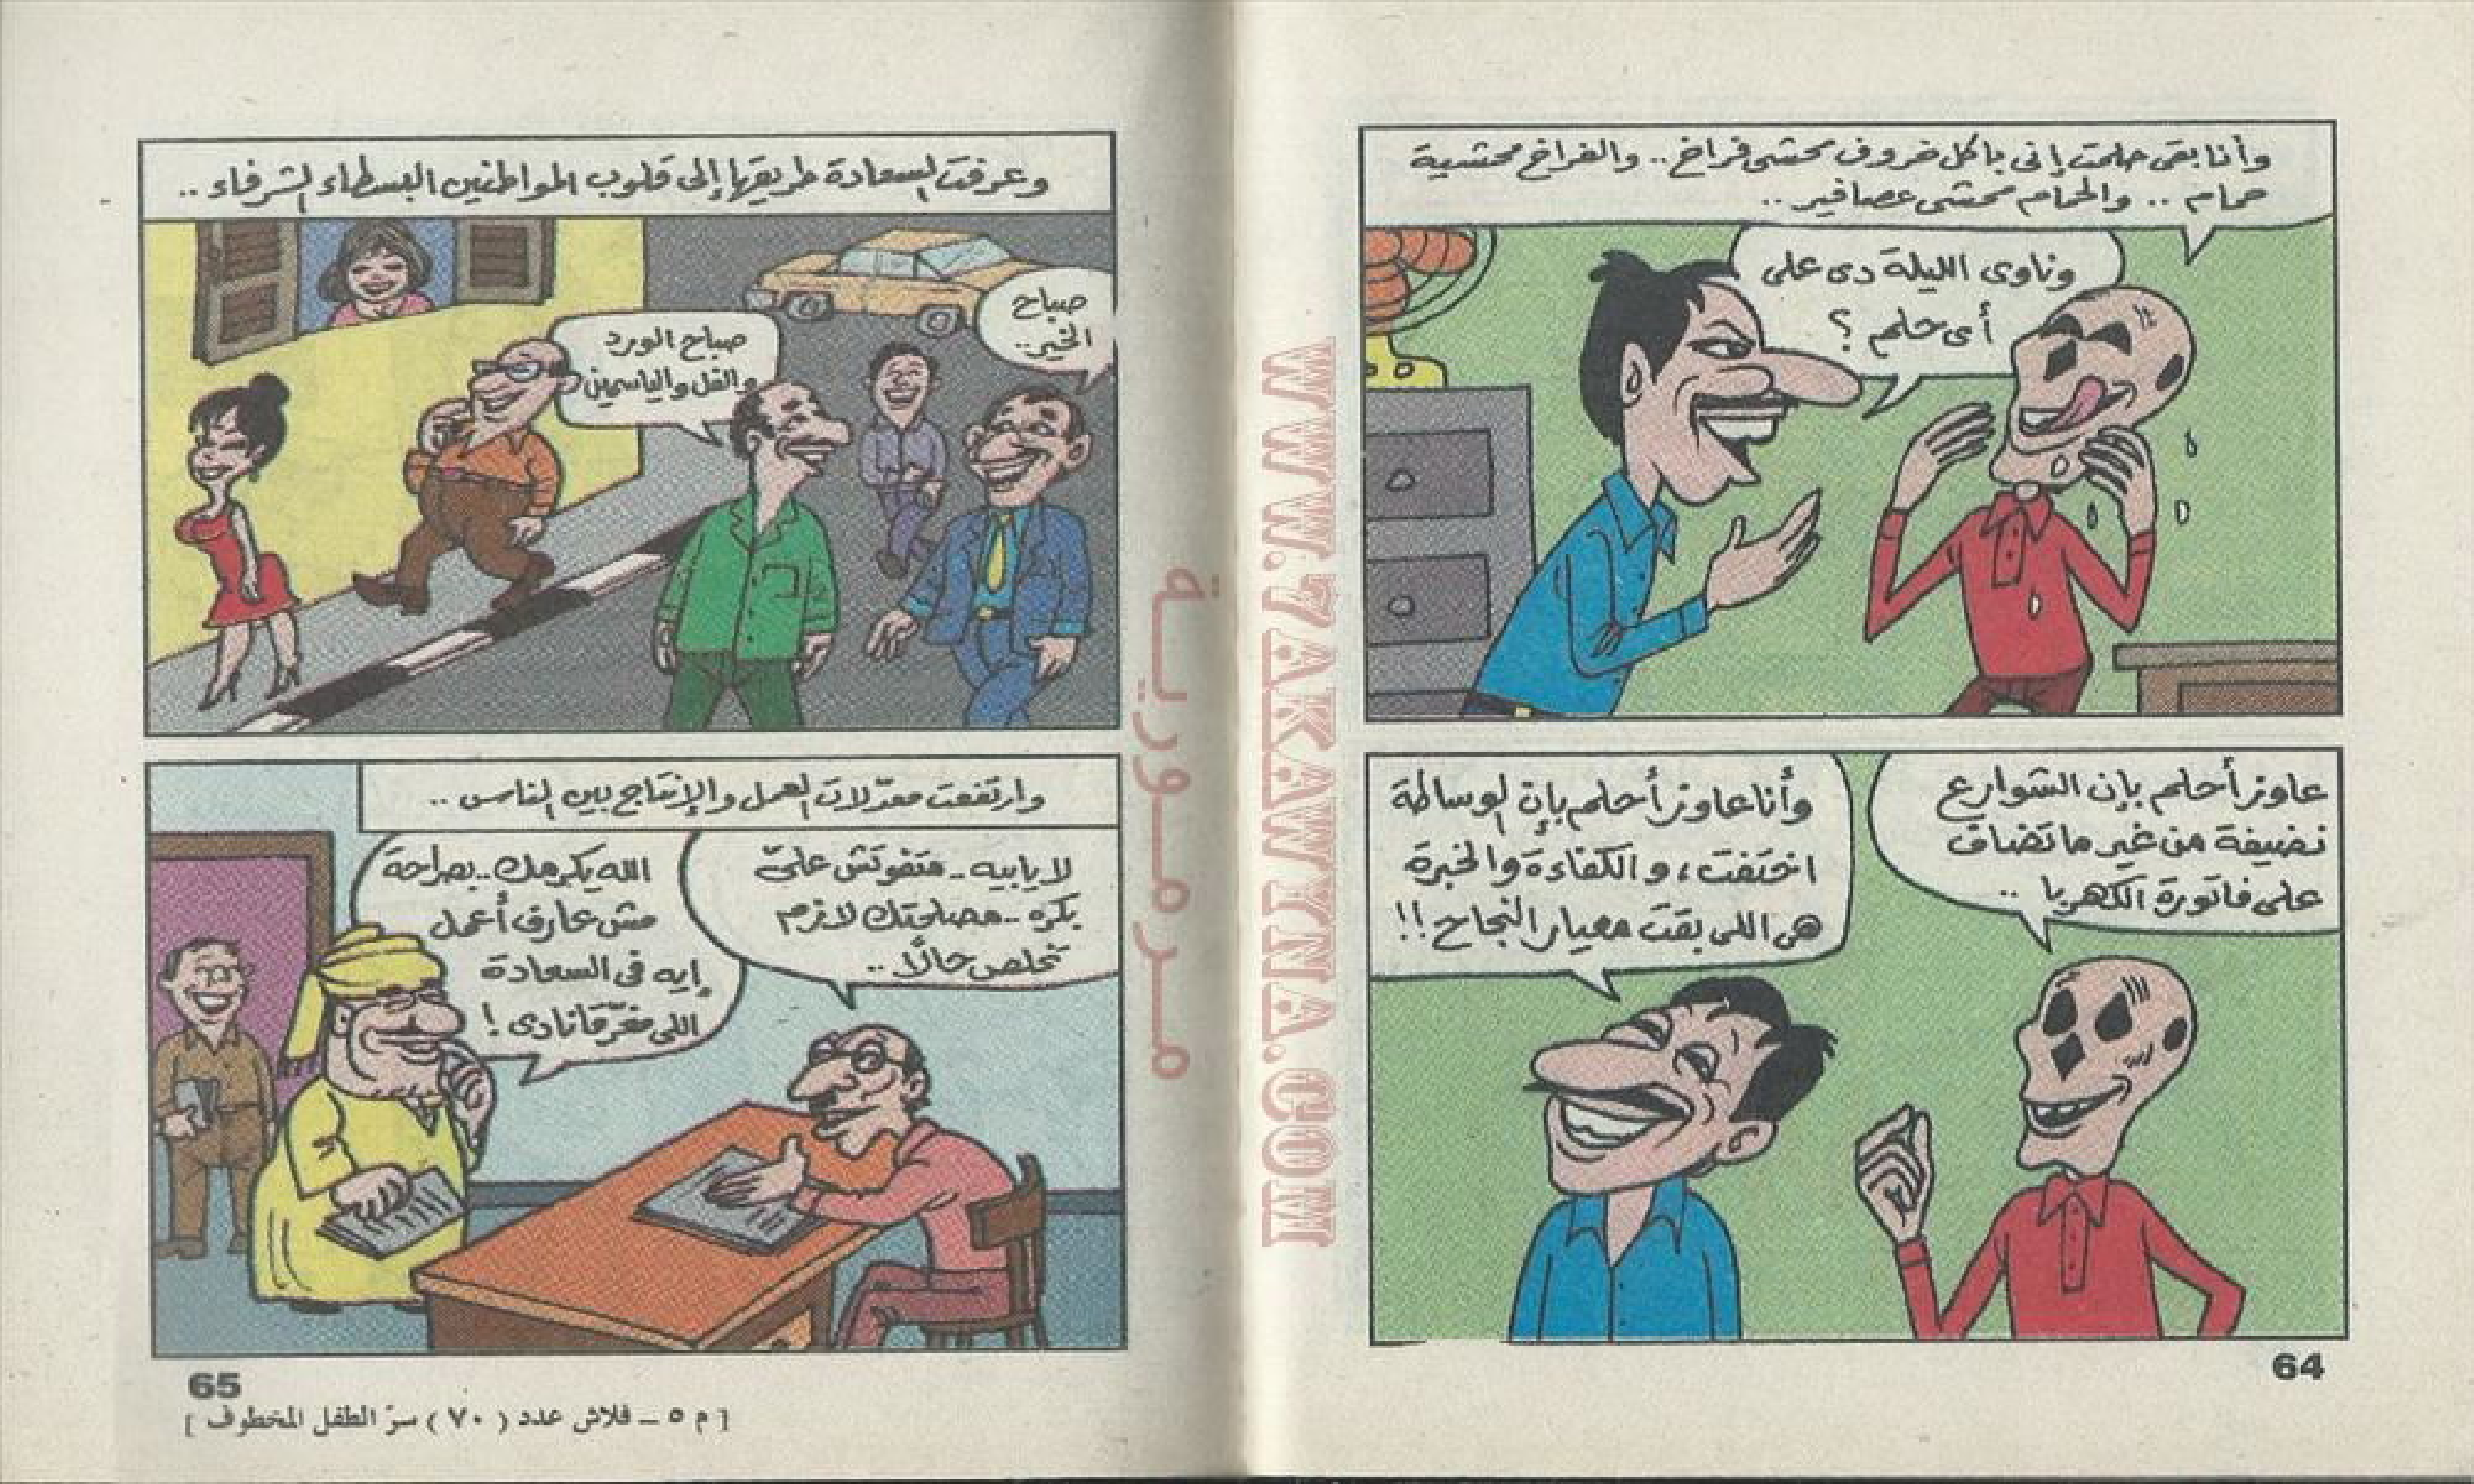 وأنا بقى حلمت إنى باكل خروف محشى فراخ.. والفراخ محشية
حمام .. والحمام محشى عصافير ..
وناوى الليلة دى على
أى حلم ؟
عاوز أحلم بإن الشوارع
نضيفة من غير ما تضاف
على فاتورة الكهربا ..
وأنا عاوز أحلم بإن الوساطة
اختفت ، والكفاءة والخبرة
هى اللى بقت معيار النجاح !!
64
وعرفت السعادة طريقها إلى قلوب المواطنين البسطاء الشرفاء ..
صباح
الخير..
صباح الورد
والفل والياسمين
وارتفعت معدّلات العمل والإنتاج بين الناس ..
لا يا بيه .. متفوتش علىّ
بكره .. مصلحتك لازم
تخلص حالًا ..
الله يكرمك .. بصراحة
مش عارف أعمل
إيه فى السعادة
اللى مغرّقانا دى !
65
[ م ٥ – فلاش عدد ( ٧٠ ) سرّ الطفل المخطوف ]
WWW.7AKAWYNA.COM